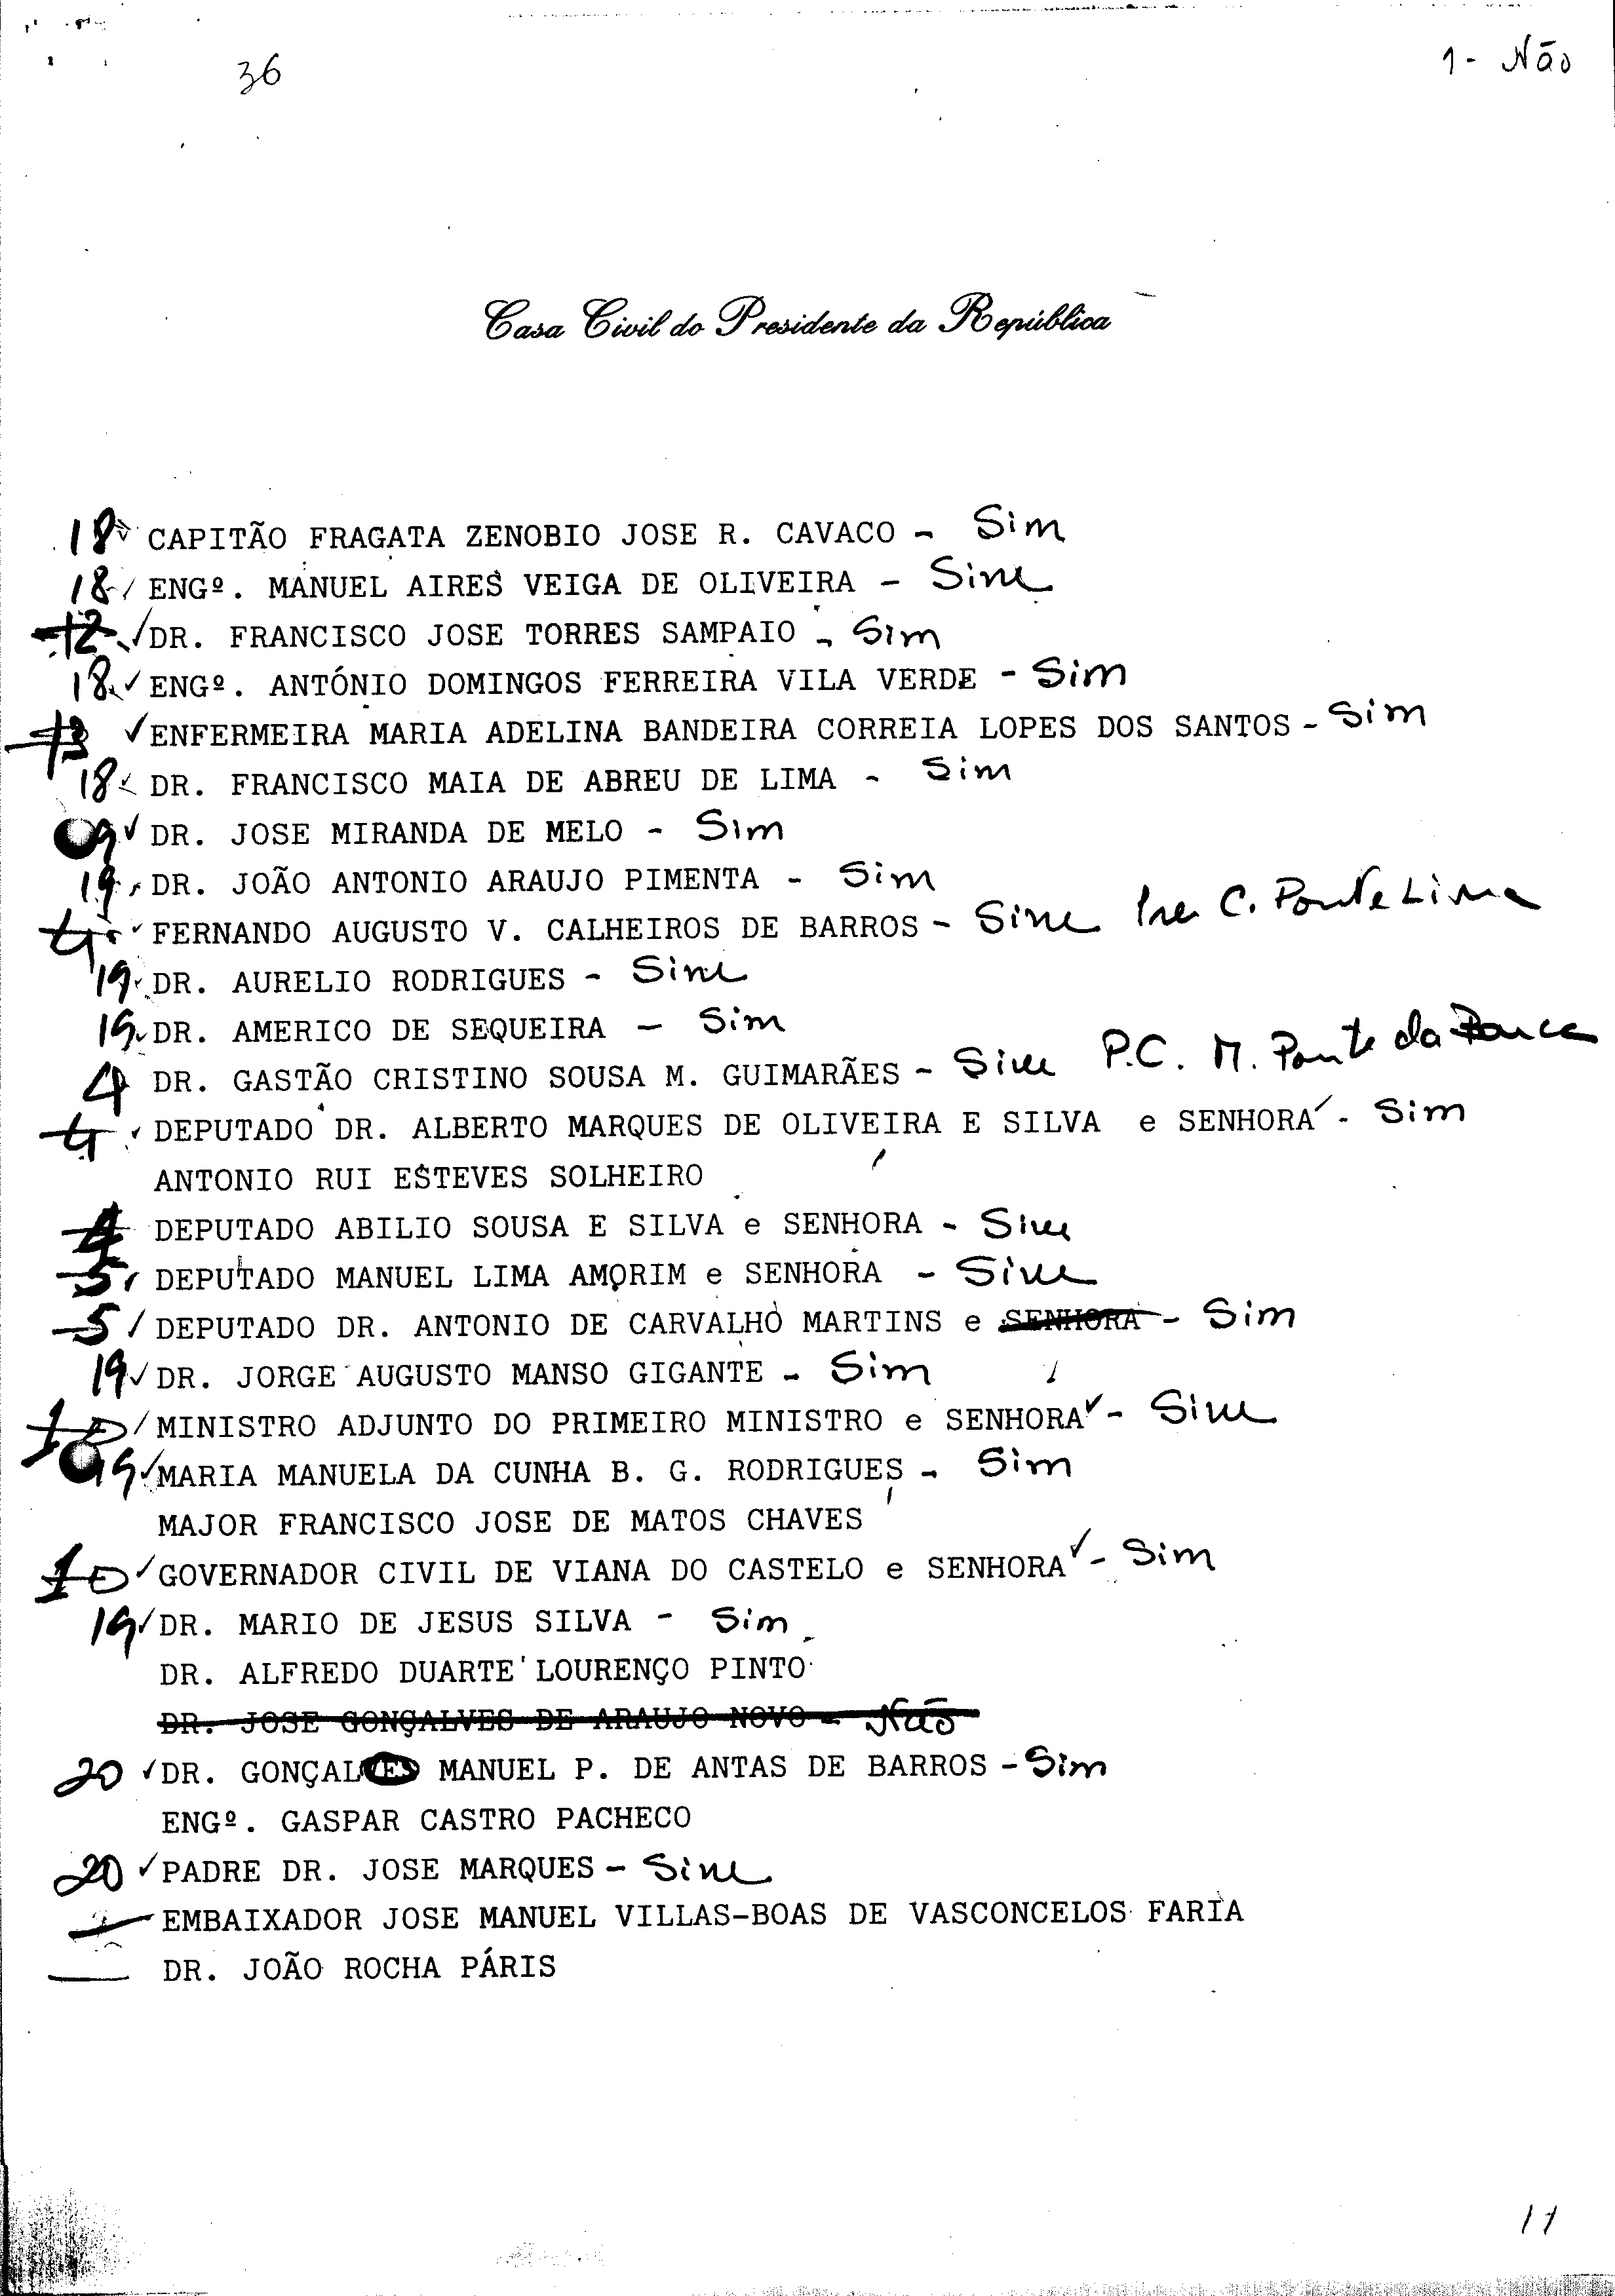 36
1 - Não
Casa Civil do Presidente da República
18 CAPITÃO FRAGATA ZENOBIO JOSE R. CAVACO - Sim
18 ENGº. MANUEL AIRES VEIGA DE OLIVEIRA - Sim
12 DR. FRANCISCO JOSE TORRES SAMPAIO - Sim
18 ENGº. ANTÓNIO DOMINGOS FERREIRA VILA VERDE - Sim
ENFERMEIRA MARIA ADELINA BANDEIRA CORREIA LOPES DOS SANTOS - Sim
18 DR. FRANCISCO MAIA DE ABREU DE LIMA - Sim
DR. JOSE MIRANDA DE MELO - Sim
19 DR. JOÃO ANTONIO ARAUJO PIMENTA - Sim
FERNANDO AUGUSTO V. CALHEIROS DE BARROS - Sim C. Ponte Lima
19 DR. AURELIO RODRIGUES - Sim
19 DR. AMERICO DE SEQUEIRA - Sim
4 DR. GASTÃO CRISTINO SOUSA M. GUIMARÃES - Sim P.C. M. Ponte da Barca
4 DEPUTADO DR. ALBERTO MARQUES DE OLIVEIRA E SILVA e SENHORA - Sim
ANTONIO RUI ESTEVES SOLHEIRO
4 DEPUTADO ABILIO SOUSA E SILVA e SENHORA - Sim
5 DEPUTADO MANUEL LIMA AMORIM e SENHORA - Sim
5 DEPUTADO DR. ANTONIO DE CARVALHO MARTINS e SENHORA - Sim
19 DR. JORGE AUGUSTO MANSO GIGANTE - Sim
10 MINISTRO ADJUNTO DO PRIMEIRO MINISTRO e SENHORA - Sim
19 MARIA MANUELA DA CUNHA B. G. RODRIGUES - Sim
MAJOR FRANCISCO JOSE DE MATOS CHAVES
10 GOVERNADOR CIVIL DE VIANA DO CASTELO e SENHORA - Sim
19 DR. MARIO DE JESUS SILVA - Sim
DR. ALFREDO DUARTE LOURENÇO PINTO
DR. JOSE GONÇALVES DE ARAUJO NOVO - Não
20 DR. GONÇALVES MANUEL P. DE ANTAS DE BARROS - Sim
ENGº. GASPAR CASTRO PACHECO
20 PADRE DR. JOSE MARQUES - Sim
EMBAIXADOR JOSE MANUEL VILLAS-BOAS DE VASCONCELOS FARIA
DR. JOÃO ROCHA PÁRIS
11